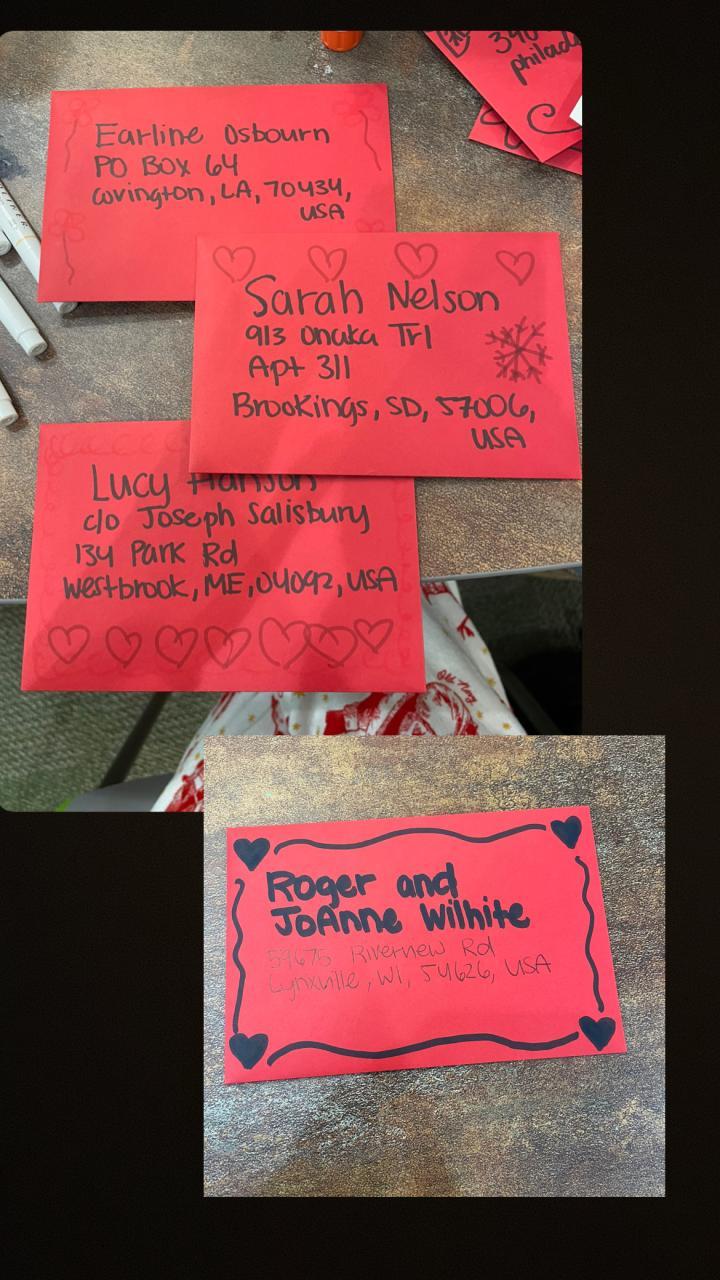 Earline Osbourn
PO BOX 64
Covington, LA, 70434,
USA
390
philad
Sarah Nelson
913 Onaka Trl
Apt 311
Brookings, SD, 57006,
USA
Lucy Hanson
c/o Joseph Salisbury
134 Park Rd
Westbrook, ME, 04092, USA
Roger and
JoAnne Wilhite
59675 Riverview Rd
Lynxville, WI, 54626, USA